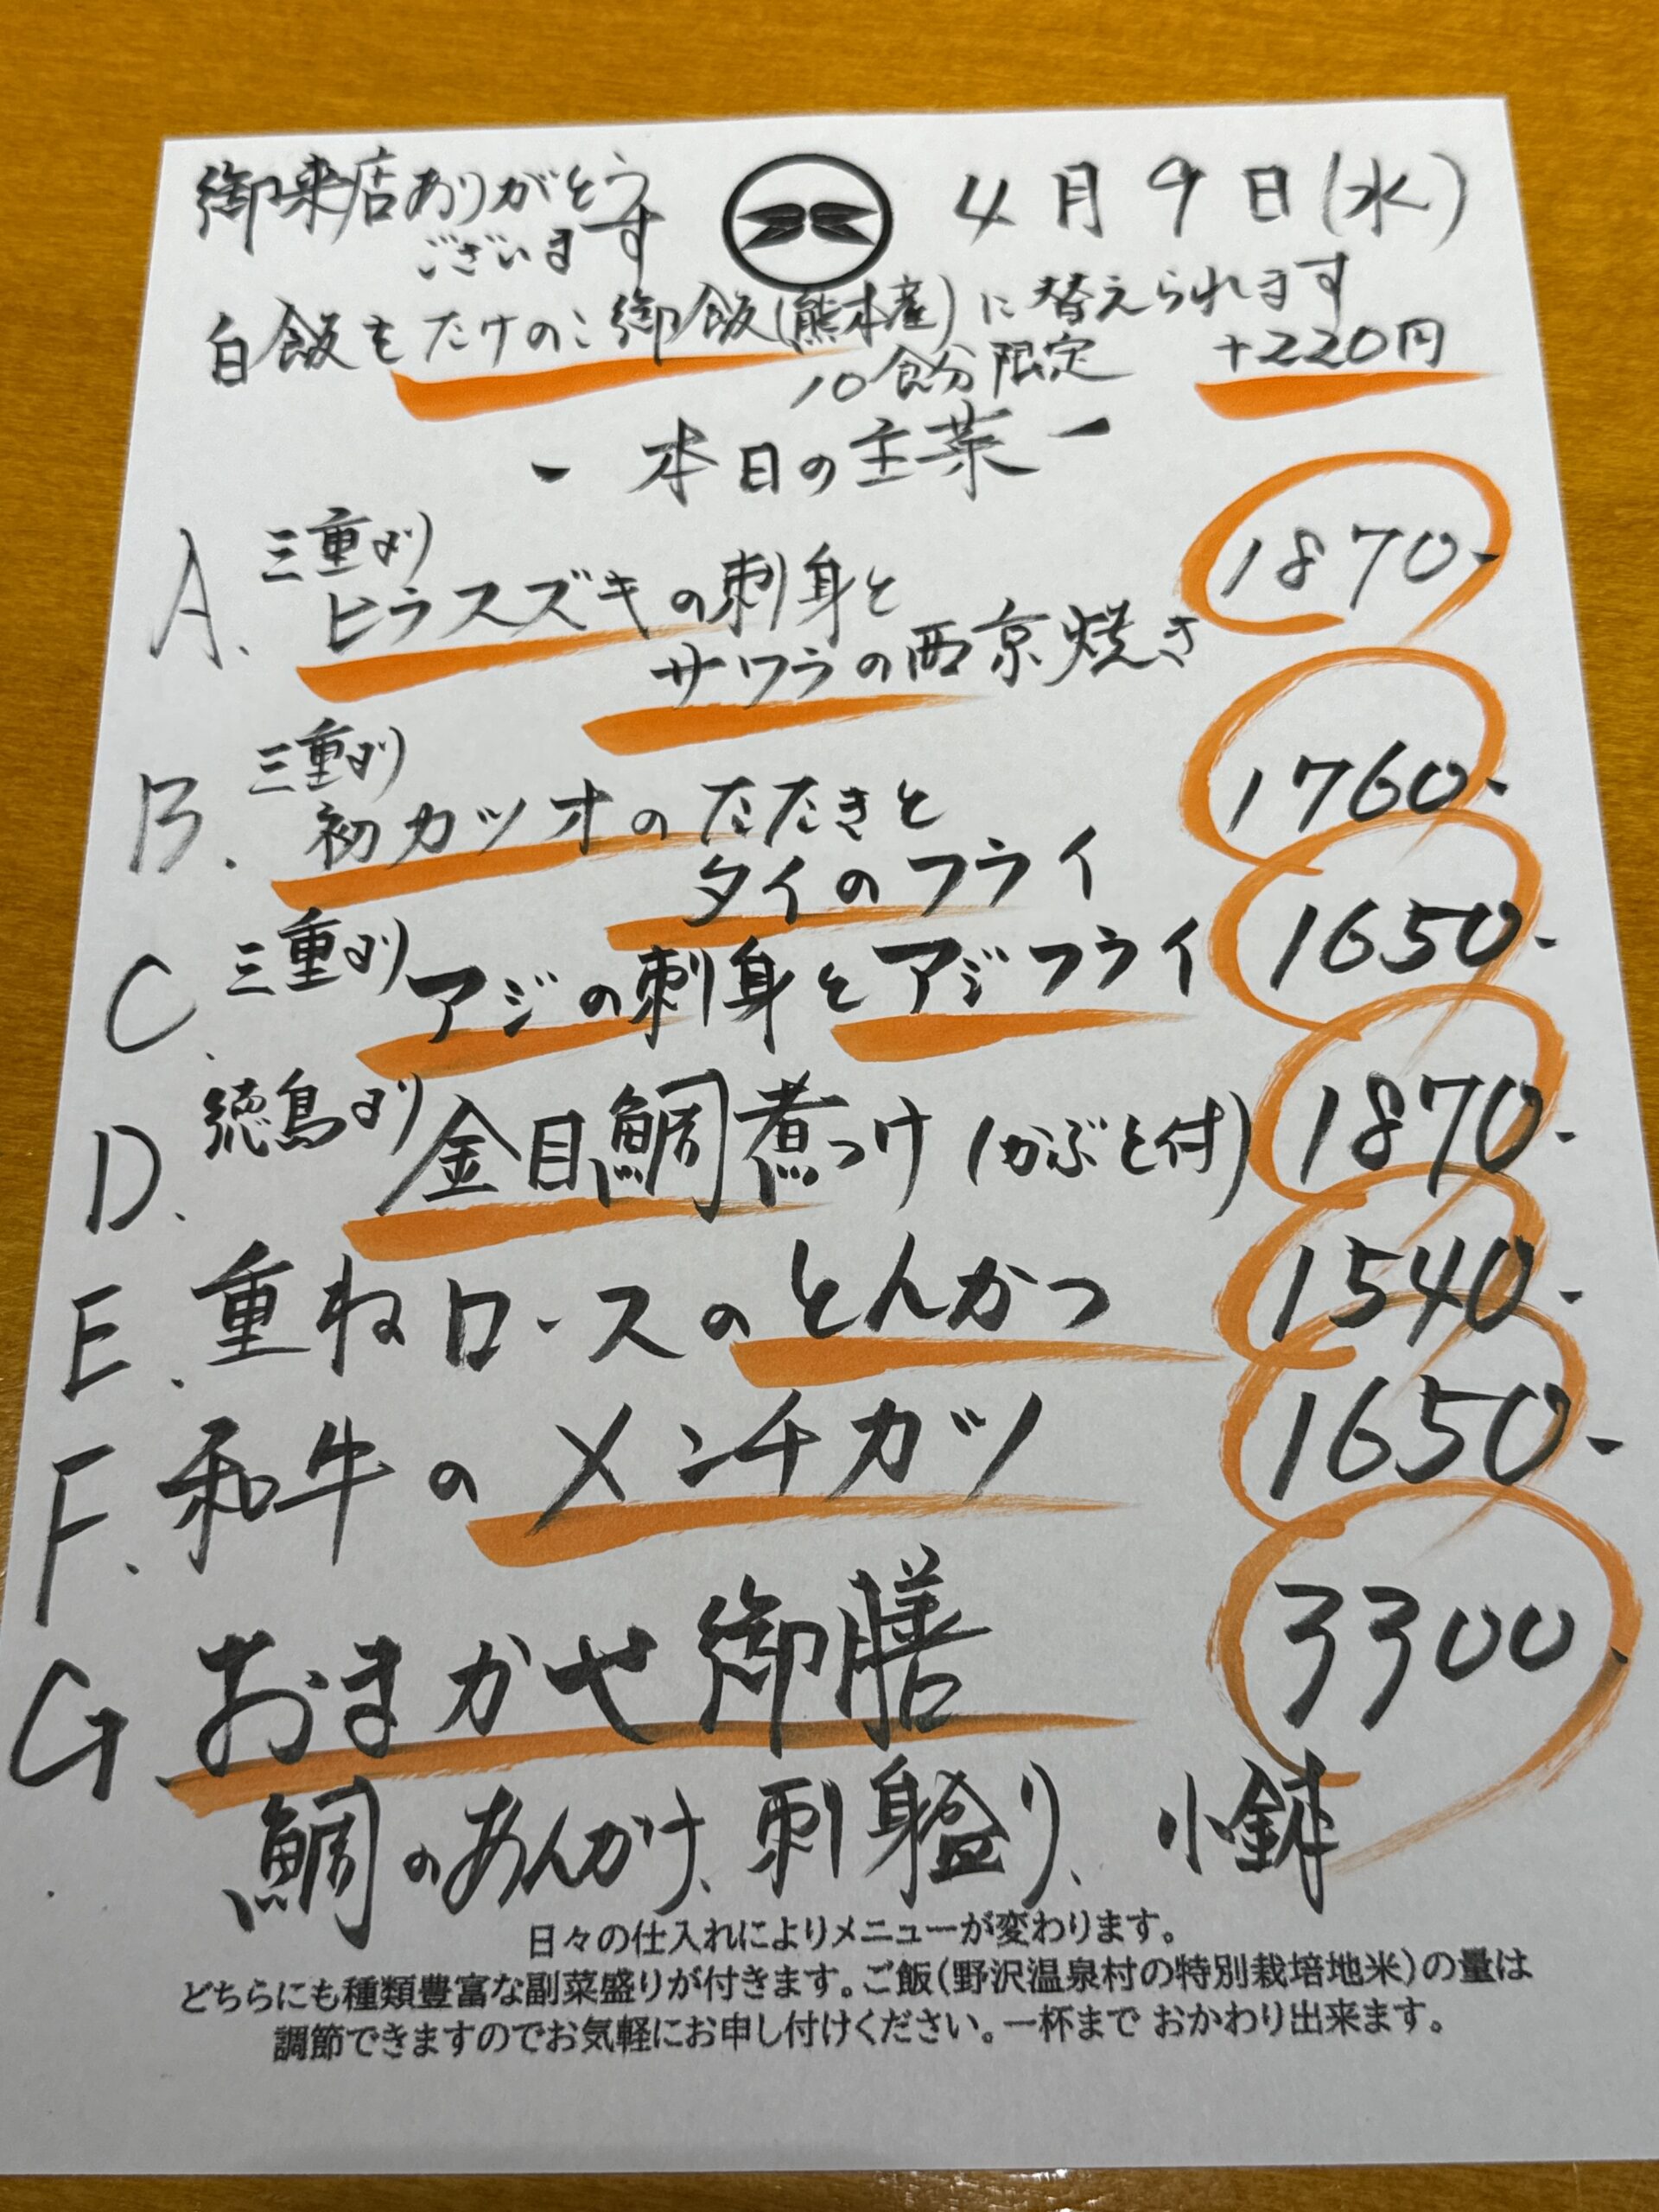 御来店ありがとう
ございます
4月9日(水)
白飯をたけのこ御飯(熊本産)に替えられます
10食分限定 +220円
- 本日の主菜 -
A. 三重より
ヒラスズキの刺身と
サワラの西京焼き
1870-
B. 三重より
初カツオのたたきと
タイのフライ
1760-
C. 三重より アジの刺身とアジフライ 1650-
D. 徳島より 金目鯛煮つけ(かぶと付) 1870-
E. 重ねロースのとんかつ 1540-
F. 和牛のメンチカツ 1650-
G. おまかせ御膳 3300-
鯛のあんかけ、刺身盛り、小鉢
日々の仕入れによりメニューが変わります。
どちらにも種類豊富な副菜盛りが付きます。ご飯(野沢温泉村の特別栽培地米)の量は
調節できますのでお気軽にお申し付けください。一杯まで おかわり出来ます。